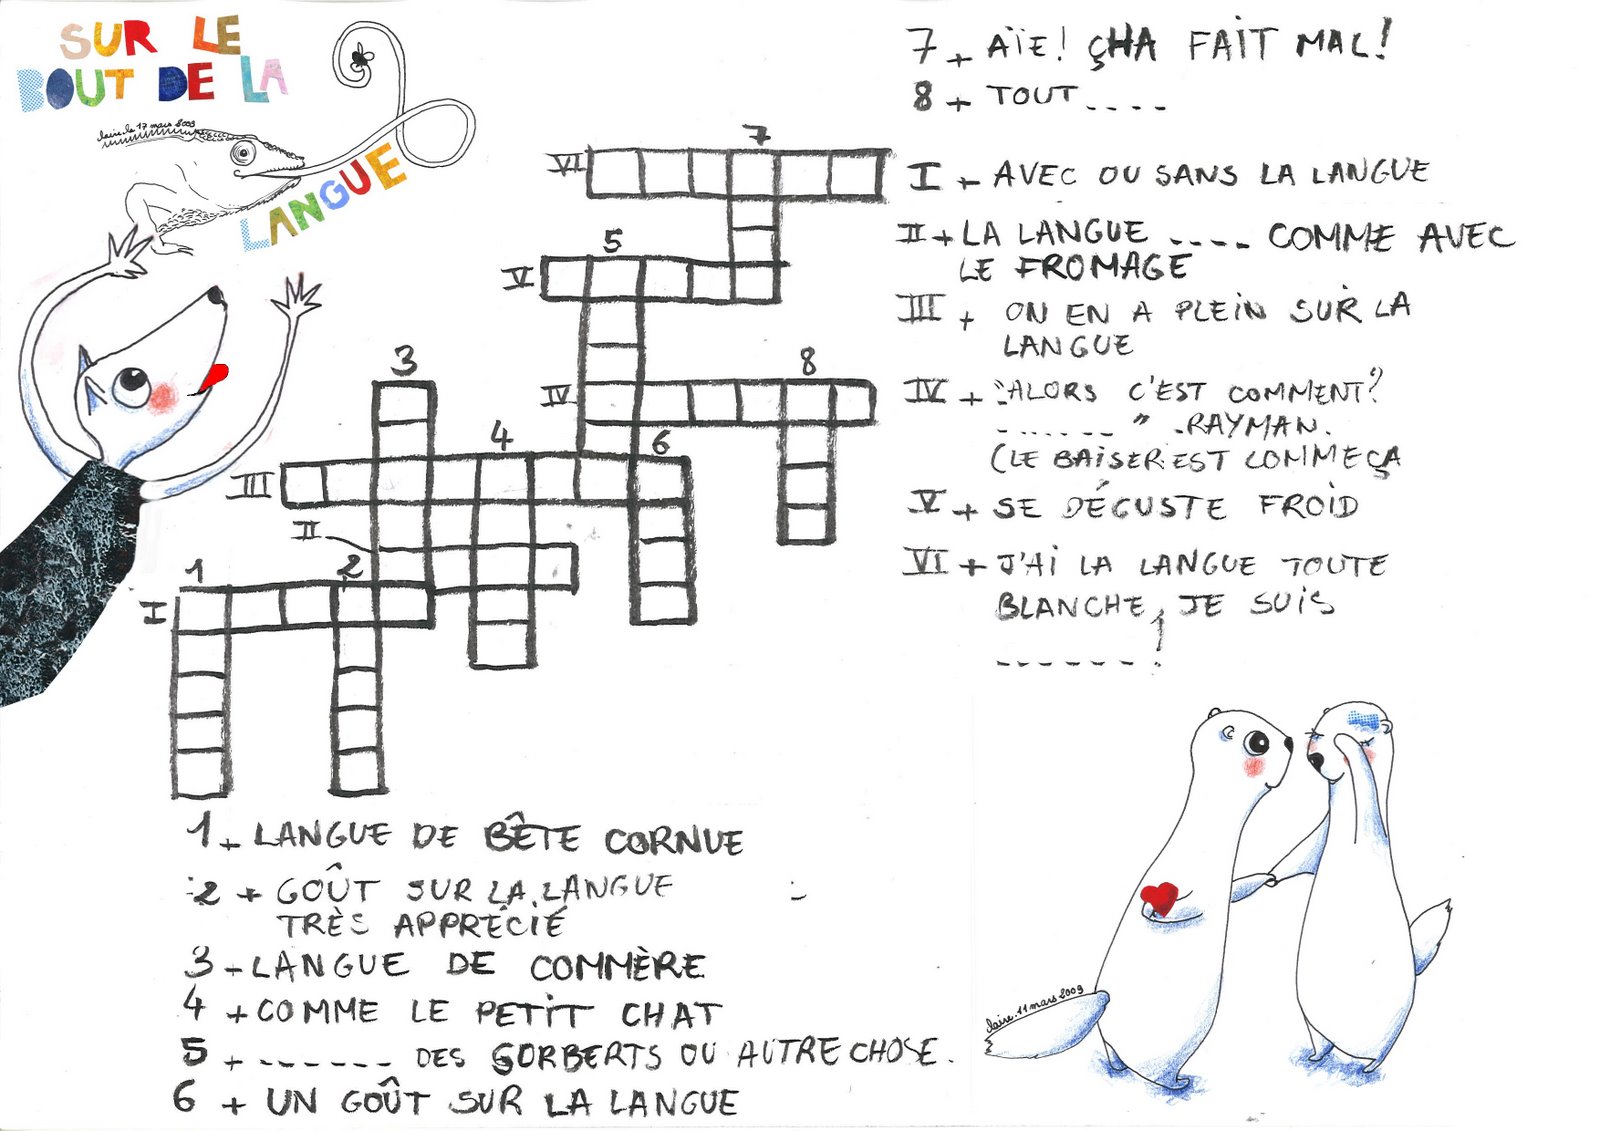 SUR LE
BOUT DE LA
LANGUE
claire.le 17 mars 2009
7
VI
5
V
3
8
IV
4
6
III
II
1
2
I
7 + AÏE! ÇHA FAIT MAL!
8 + TOUT....
I + AVEC OU SANS LA LANGUE
II + LA LANGUE .... COMME AVEC
LE FROMAGE
III + ON EN A PLEIN SUR LA
LANGUE
IV + "ALORS C'EST COMMENT?
------- " -RAYMAN.
(LE BAISER EST COMME ÇA
V + SE DÉGUSTE FROID
VI + J'AI LA LANGUE TOUTE
BLANCHE, JE SUIS
------- !
1 + LANGUE DE BÊTE CORNUE
2 + GOÛT SUR LA LANGUE
TRÈS APPRÉCIÉ
3 - LANGUE DE COMMÈRE
4 + COMME LE PETIT CHAT
5 + ------ DES SORBERTS OU AUTRE CHOSE.
6 + UN GOÛT SUR LA LANGUE
claire.11 mars 2009